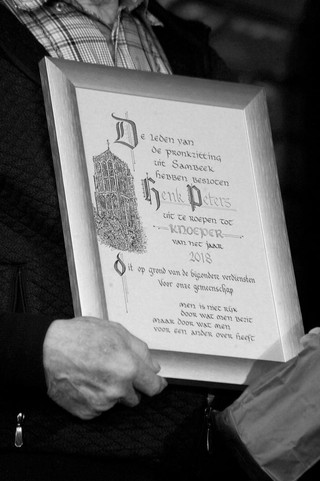 De leden van
de pronkzitting
uit Sambeek
hebben besloten
Henk Peters
uit te roepen tot
KNOEPER
van het jaar
2018
Dit op grond van de bijzondere verdiensten
Voor onze gemeenschap
men is niet rijk
door wat men bezit
maar door wat men
voor een ander over heeft